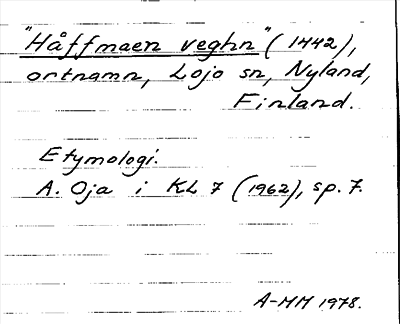 "Håffmaen veghn" (1442),
ortnamn, Lojo sn, Nyland,
Finland.
Etymologi.
A. Oja i KL 7 (1962), sp. 7.
A-MM 1978.